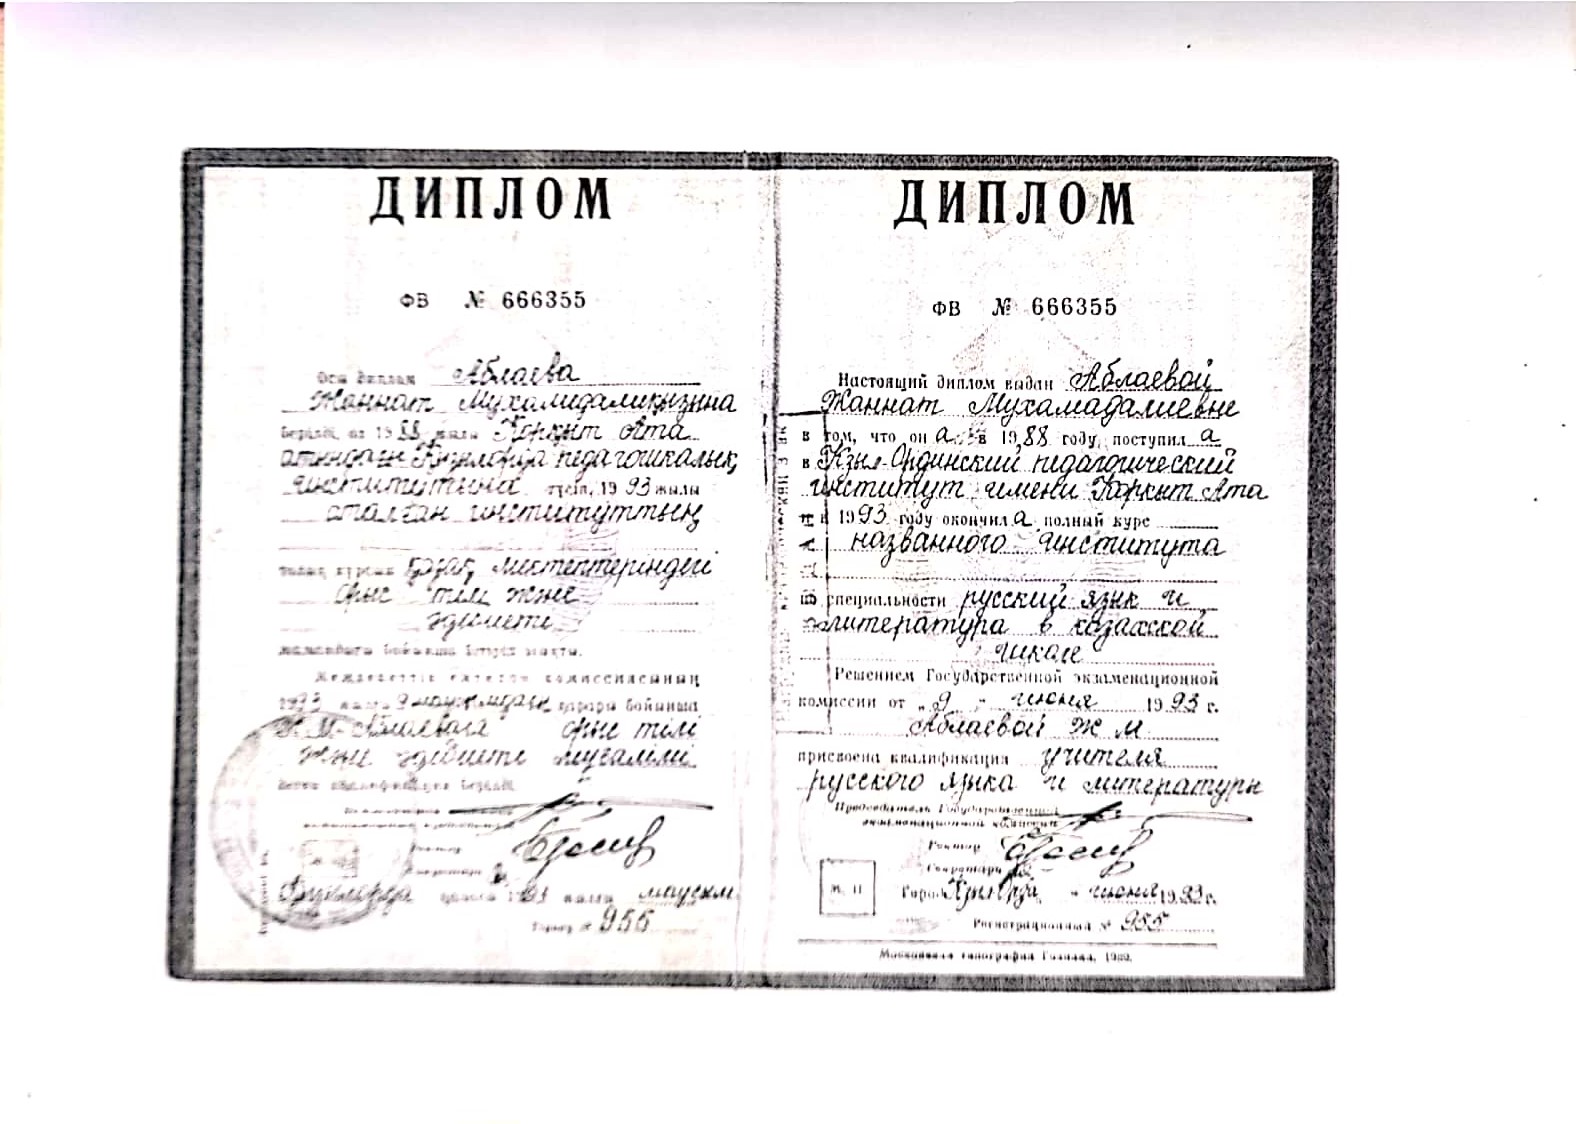 ДИПЛОМ
ФВ № 666355
Осы диплом Аблаева
Жаннат Мухамидалиқызына
берілді, ол 1988 жылы Қорқыт Ата
атындағы Қызылорда педагогикалық
институтына түсіп, 1993 жылы
аталған институттың
толық курсын қазақ мектептеріндегі
орыс тілі және
әдебиеті
мамандығы бойынша бітіріп шықты.
Мемлекеттік емтихан комиссиясының
1993 жылғы 9 маусымдағы қарары бойынша
Ж.М. Аблаеваға орыс тілі
және әдебиеті мұғалімі
деген квалификация берілді
Ректор
қаласы 1993 жылы маусым
Тіркеу № 955
ДИПЛОМ
ФВ № 666355
Настоящий диплом выдан Аблаевой
Жаннат Мухамадалиевне
в том, что он а в 1988 году, поступил а
в Кзыл-Ординский педагогический
институт имени Коркыт Ата
и в 1993 году окончил а полный курс
названного института
по специальности русский язык и
литература в казахской
школе
Решением Государственной экзаменационной
комиссии от „ 9 „ июня 1993 г.
Аблаевой Ж М
присвоена квалификация учителя
русского языка и литературы
Председатель Государственной
экзаменационной комиссии
Ректор
Секретарь
М. П.
Город Кзылорда „ июня 1993 г.
Регистрационный № 955
Московская типография Гознака,